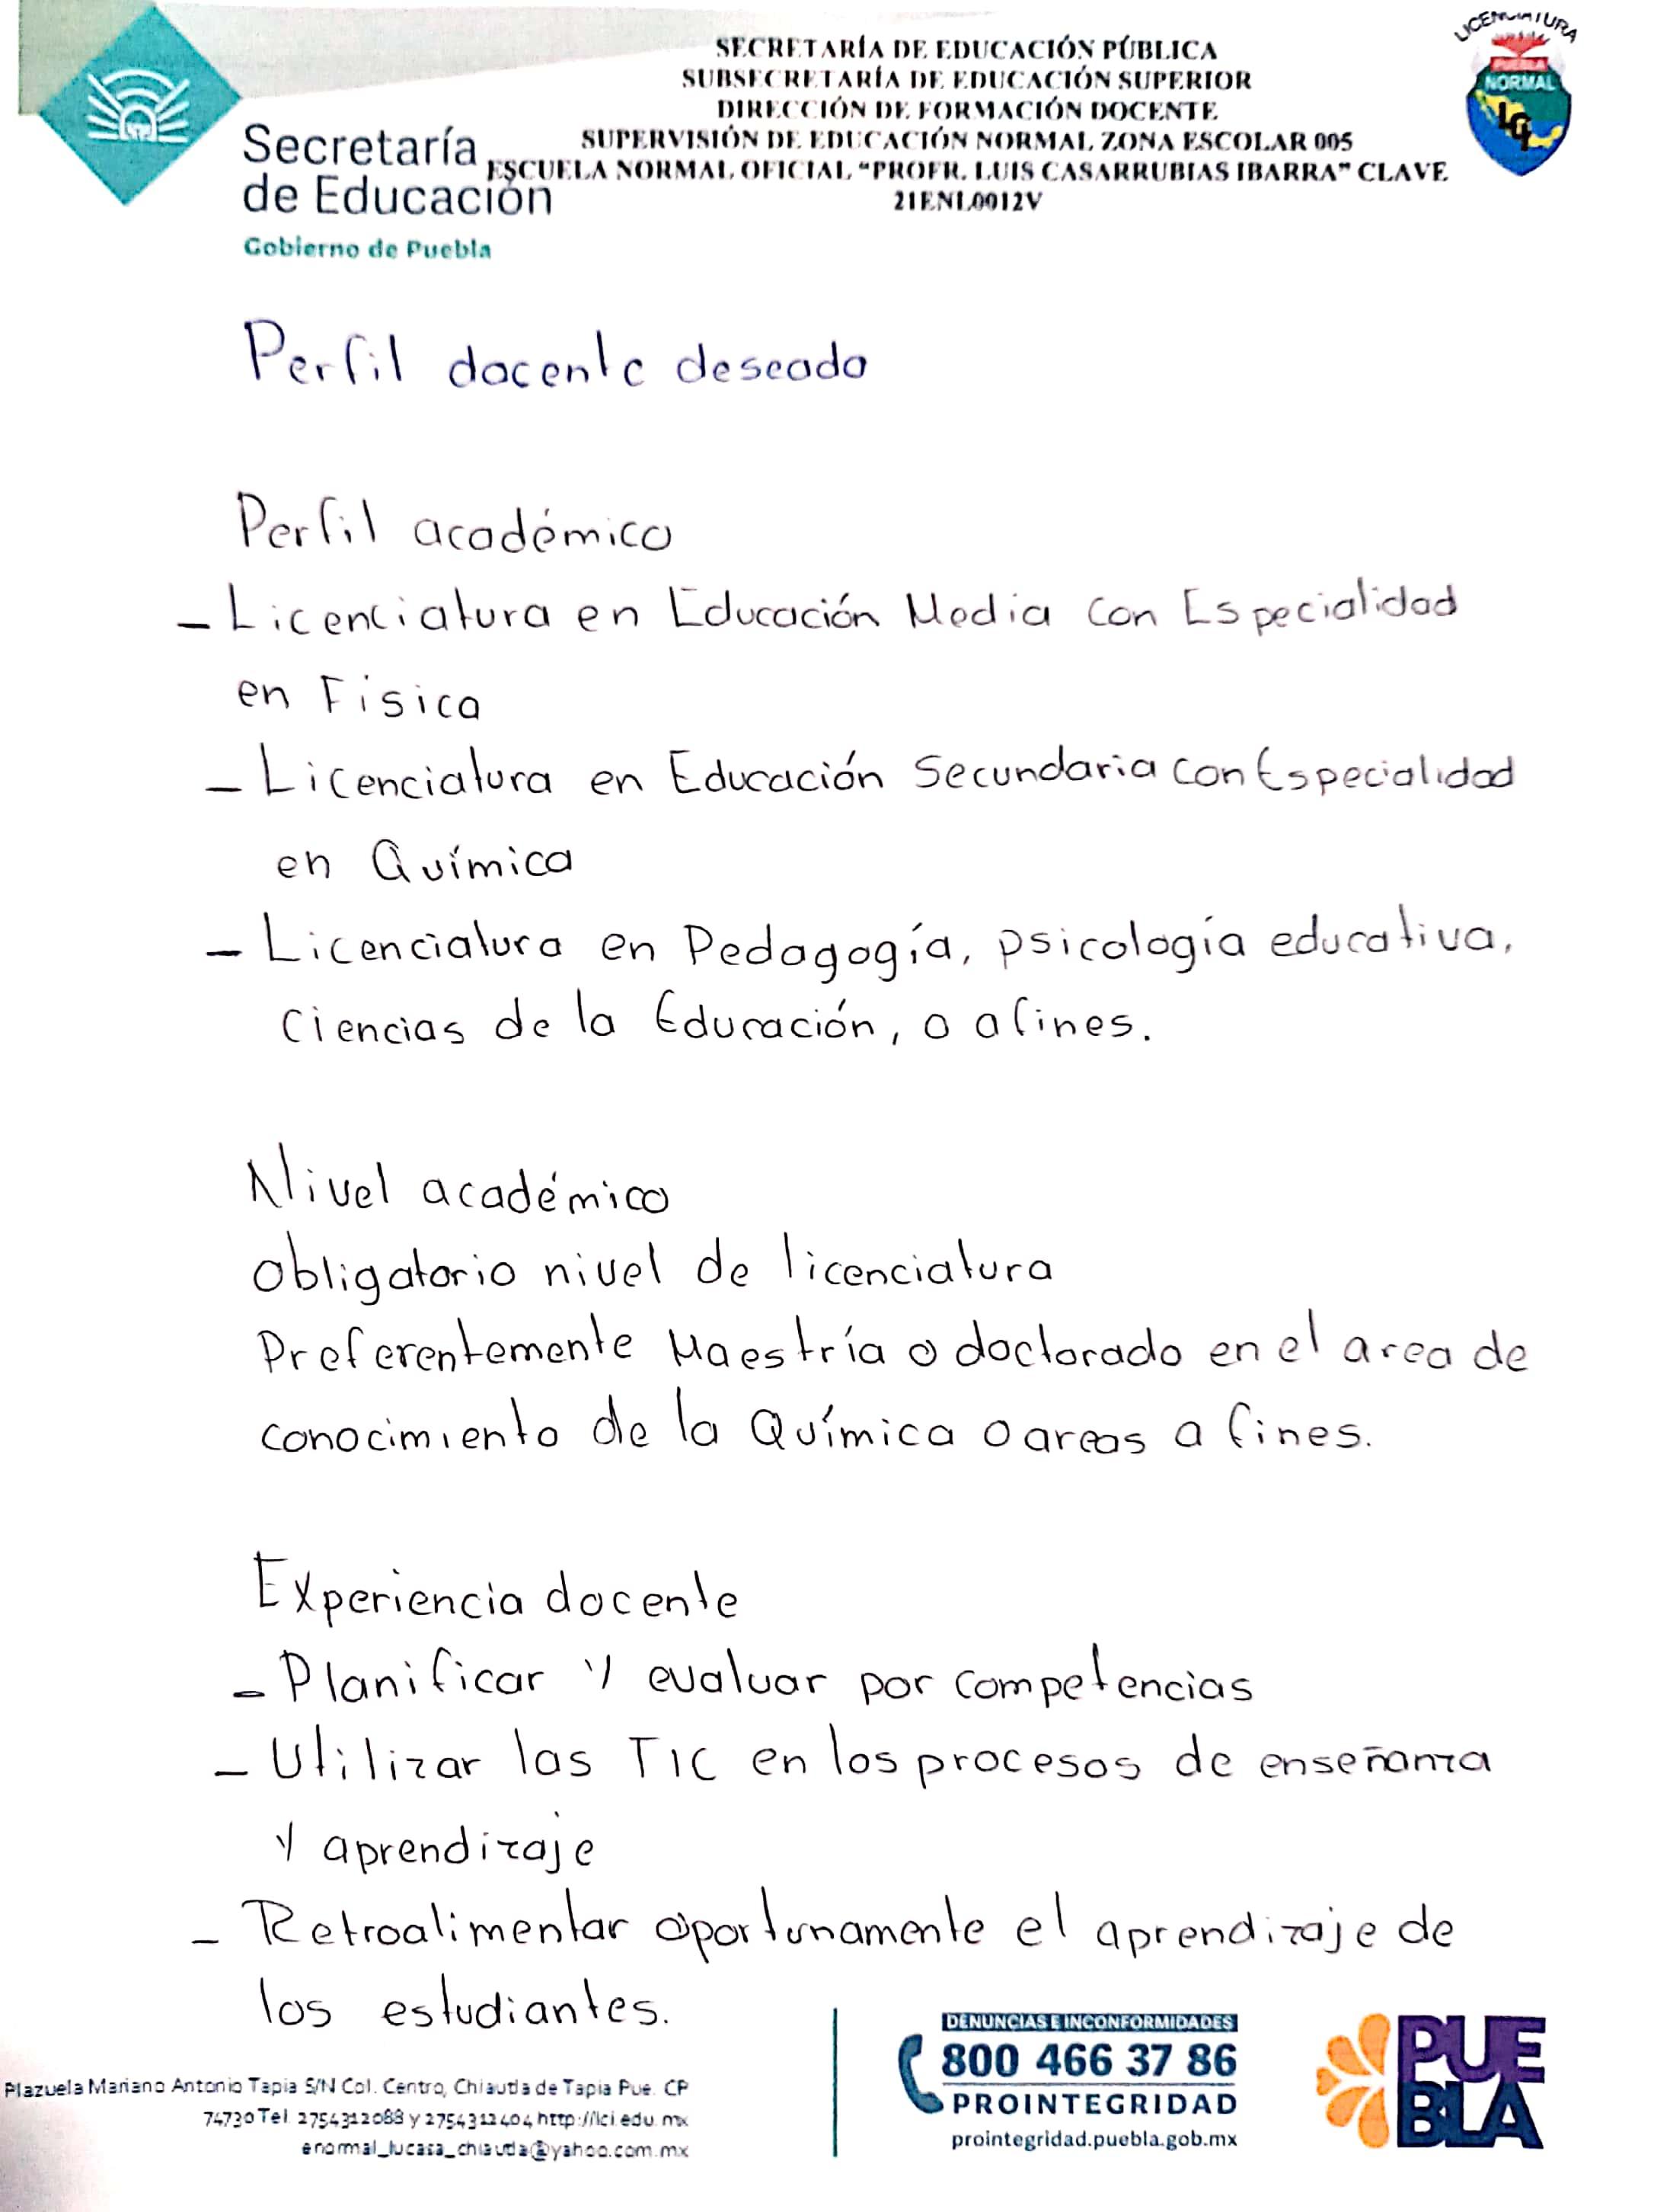 LICENCIATURA
PUEBLA
NORMAL
SECRETARÍA DE EDUCACIÓN PÚBLICA
SUBSECRETARÍA DE EDUCACIÓN SUPERIOR
DIRECCIÓN DE FORMACIÓN DOCENTE
SUPERVISIÓN DE EDUCACIÓN NORMAL ZONA ESCOLAR 005
ESCUELA NORMAL OFICIAL “PROFR. LUIS CASARRUBIAS IBARRA” CLAVE
21ENL0012V
Secretaría
de Educación
Gobierno de Puebla
Perfil docente deseado
Perfil académico
- Licenciatura en Educación Media con Especialidad
en Física
- Licenciatura en Educación Secundaria con Especialidad
en Química
- Licenciatura en Pedagogía, psicología educativa,
Ciencias de la Educación, o afines.
Nivel académico
Obligatorio nivel de licenciatura
Preferentemente Maestría o doctorado en el area de
conocimiento de la Química o areas a fines.
Experiencia docente
- Planificar y evaluar por competencias
- Utilizar las TIC en los procesos de enseñanza
y aprendizaje
- Retroalimentar oportunamente el aprendizaje de
los estudiantes.
Plazuela Mariano Antonio Tapia S/N Col. Centro, Chiautla de Tapia Pue. CP
74730 Tel. 2754312088 y 2754312404 http://lci.edu.mx
enormal_lucasa_chiautla@yahoo.com.mx
DENUNCIAS E INCONFORMIDADES
800 466 37 86
PROINTEGRIDAD
prointegridad.puebla.gob.mx
PUE
BLA